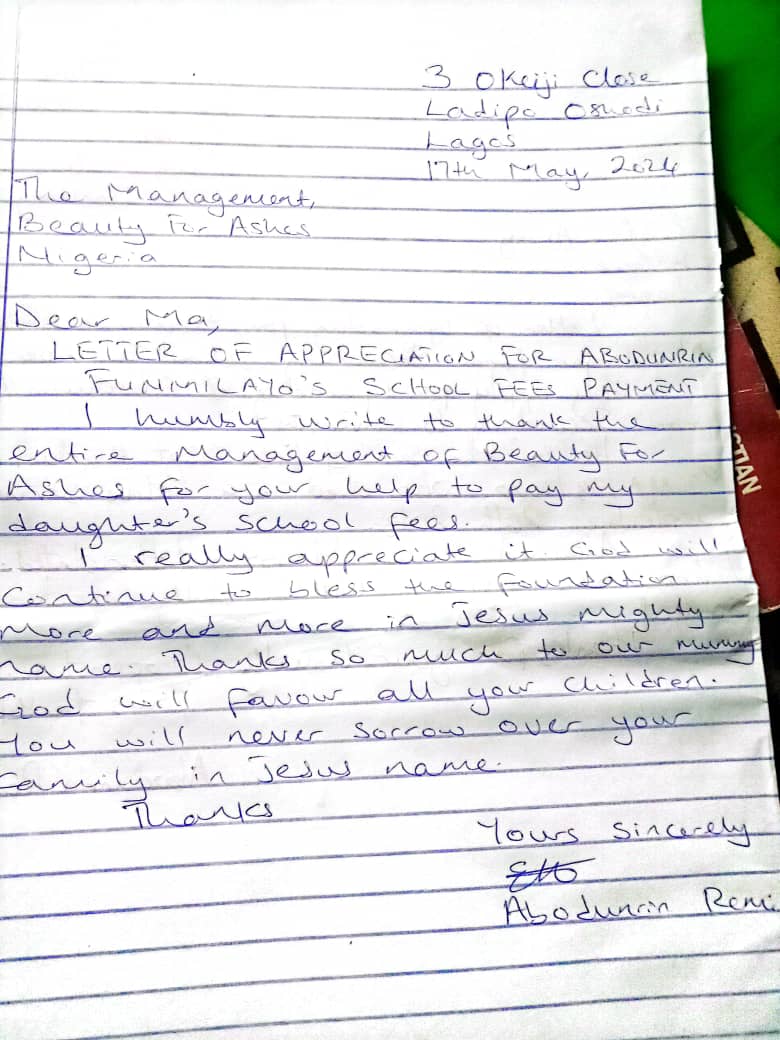 3 Okeiji Close
Ladipo Oshodi
Lagos
17th May, 2024
The Management,
Beauty For Ashes
Nigeria
Dear Ma,
LETTER OF APPRECIATION FOR ABODUNRIN
FUNMILAYO'S SCHOOL FEES PAYMENT
I humbly write to thank the
entire Management of Beauty For
Ashes for your help to pay my
daughter's school fees.
I really appreciate it. God will
Continue to bless the foundation
more and more in Jesus mighty
name. Thanks so much to our mummy
God will favour all your children.
You will never sorrow over your
family in Jesus name.
Thanks
Yours Sincerely
Abodunrin Remi
STIAN